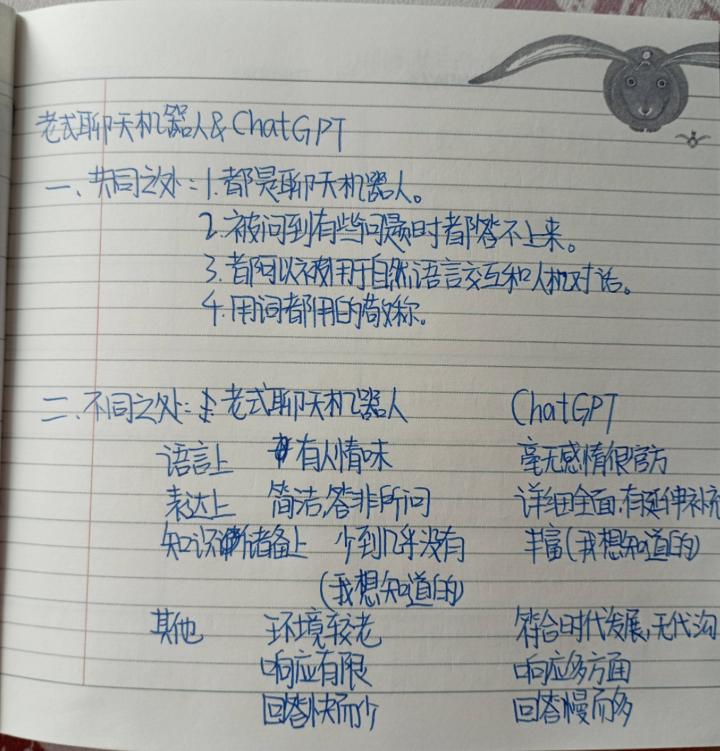 老式聊天机器人&ChatGPT
一、共同之处：1.都是聊天机器人。
2.被问到有些问题时都答不上来。
3.都可以被用于自然语言交互和人机对话。
4.用词都用的敬称。
二、不同之处： 老式聊天机器人 ChatGPT
语言上 有人情味 毫无感情很官方
表达上 简洁,答非所问 详细全面,有延伸补充
知识储备上 少到几乎没有 丰富(我想知道的)
(我想知道的)
其他 环境较老 符合时代发展,无代沟
响应有限 响应多方面
回答快而少 回答慢而多